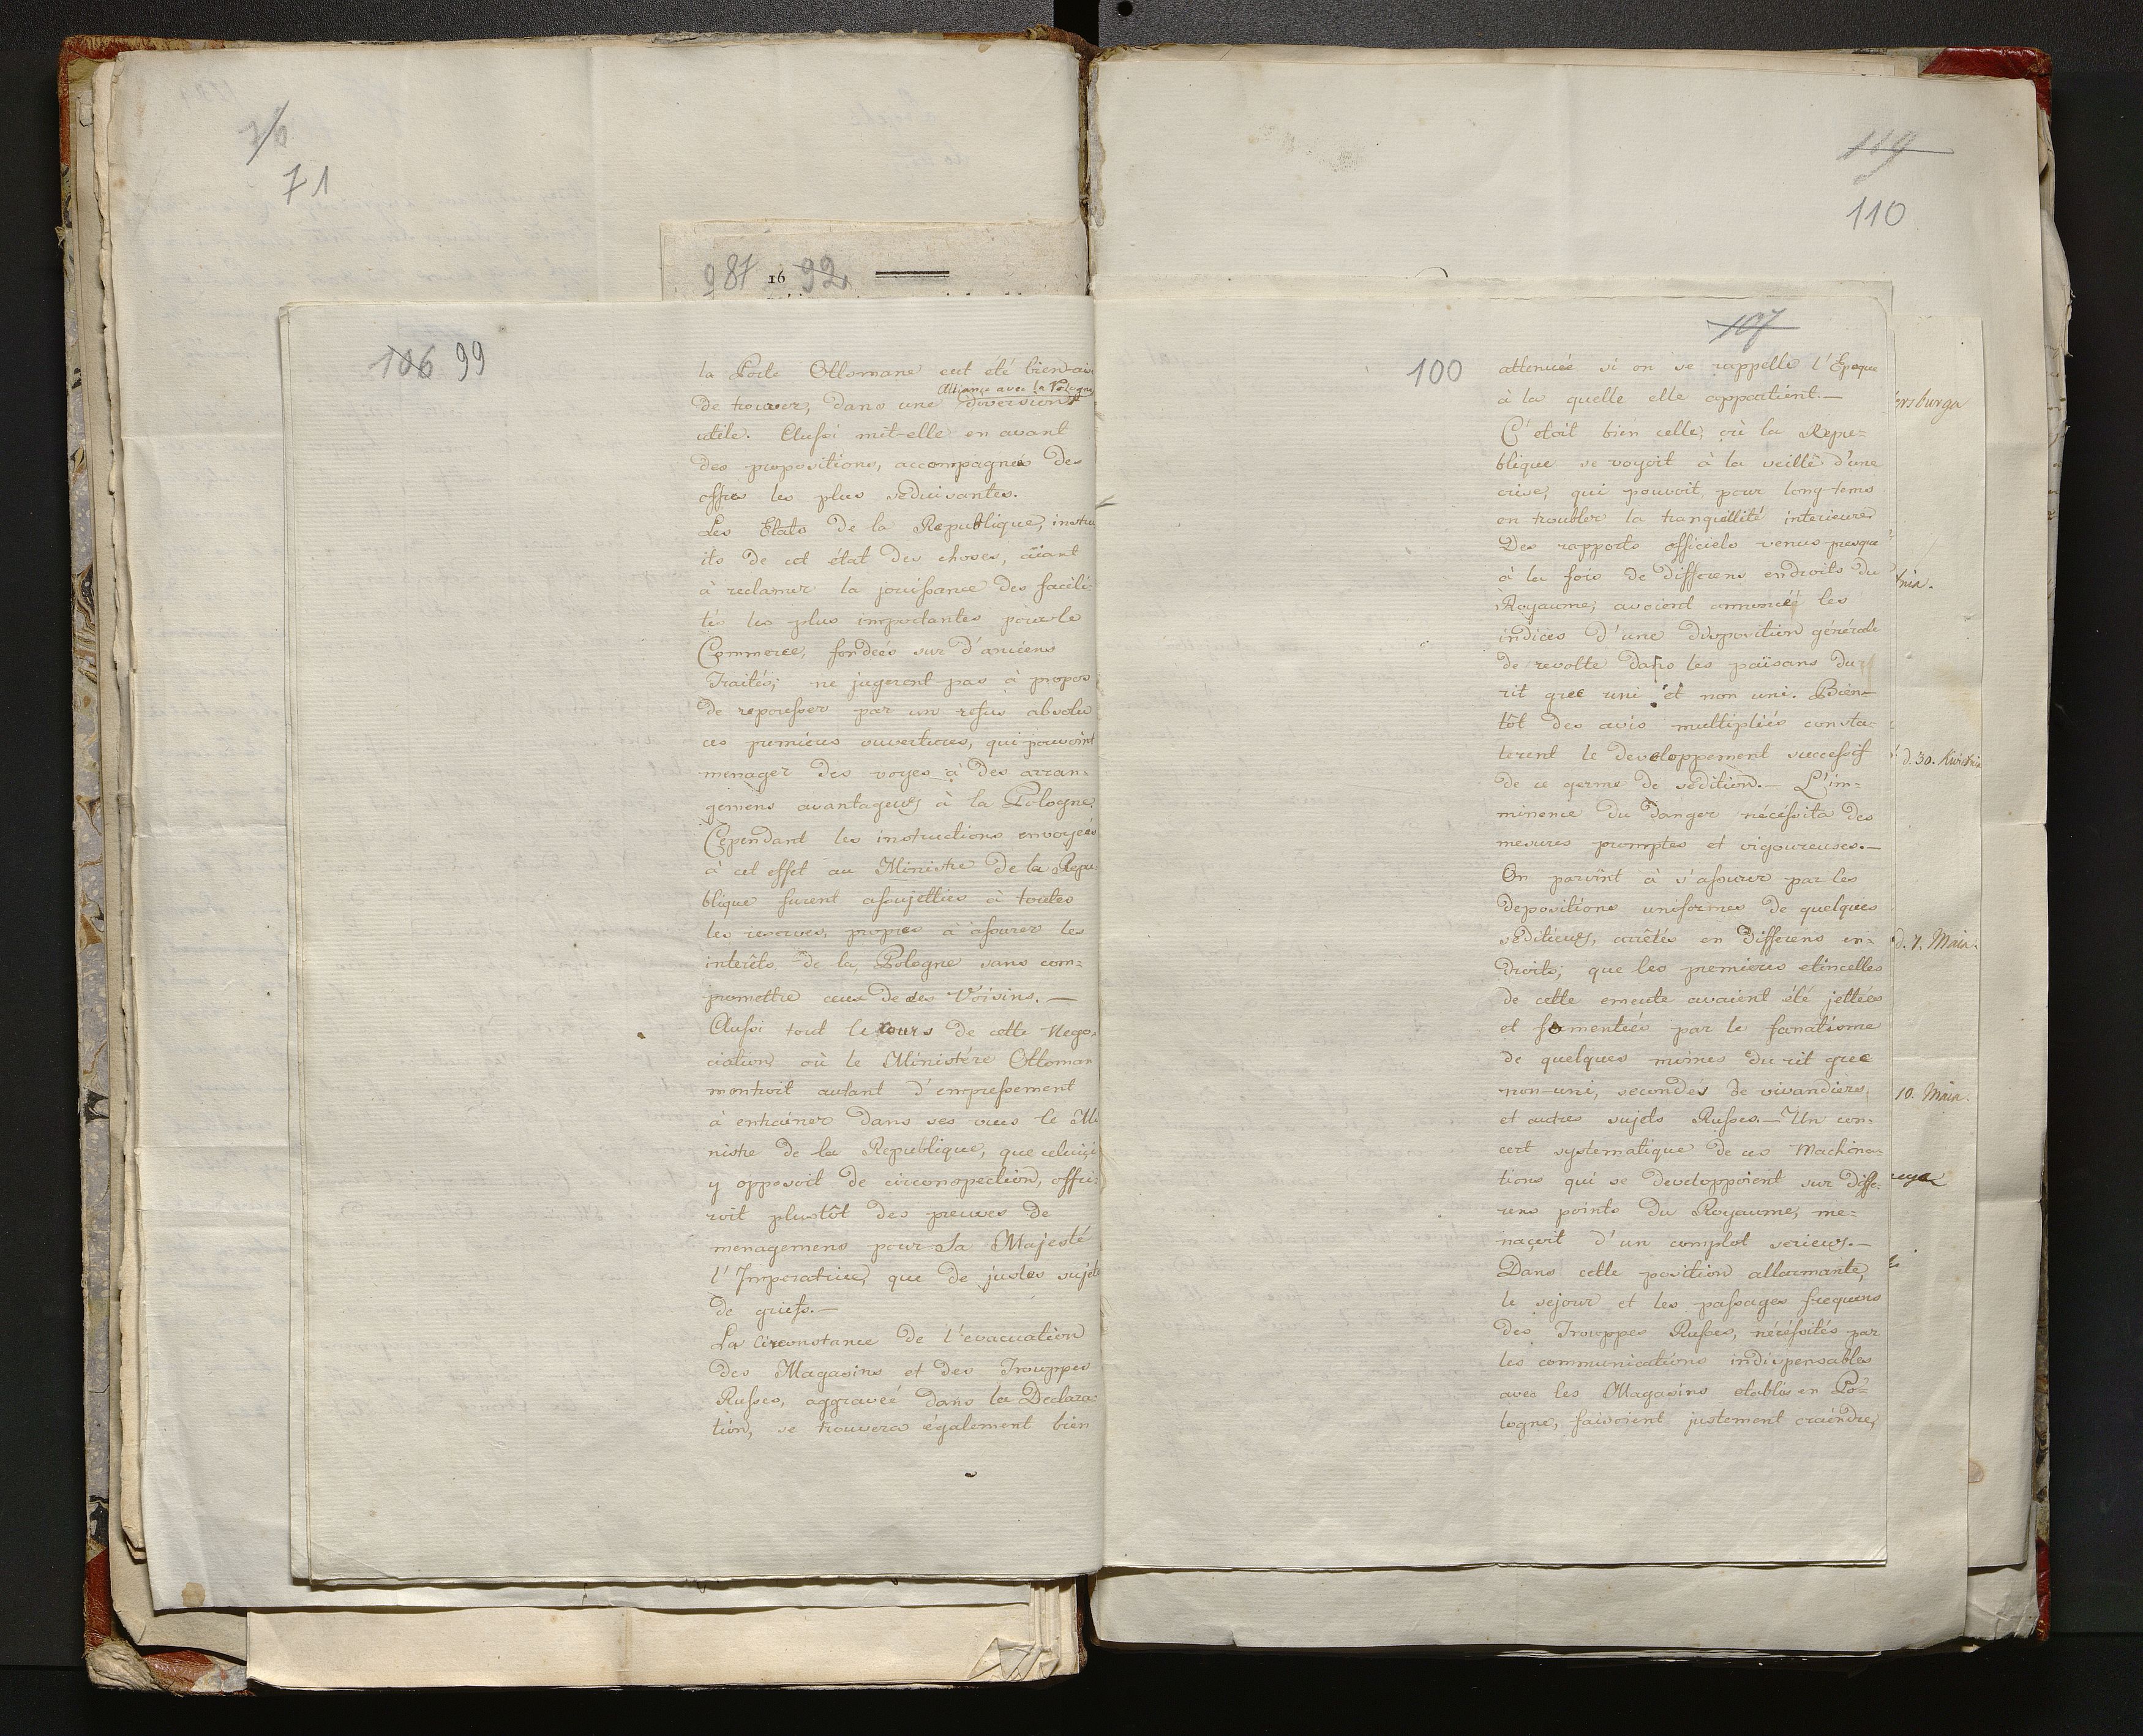 76
71
987 16 92
106 99
la Porte Ottomane eut été bien-ais
Alliance avec la Pologne
de trouver, dans une diversion
utile. Aussi mit-elle en avant
des propositions, accompagnés des
offres les plus séduisantes.
Les Etats de la Republique, instru
its de cet état des choses, aïant
à reclamer la jouissance des facili-
tés les plus importantes pour le
Commerce, fondeés sur d'anciens
Traités; ne jugerent pas à propos
de repousser par un refus absolu
ces premieres ouvertures, qui pouvoint
menager des voyes à des arran-
gemens avantageux à la Pologne.
Cependant les instructions envoyeés
à cet effet au Ministre de la Repu-
blique furent assujetties à toutes
les reserves, propres à assurer les
interêts de la Pologne sans com-
promettre ceux de ses Voisins. —
Aussi tout le cours de cette Nego-
ciation où le Ministére Ottoman
montroit autant d'empressement
à entrainer dans ses vues le Mi
nistre de la Republique, que celuici
y opposoit de circonspection, offri-
roit plustôt des preuves de
menagemens pour Sa Majesté
l'Imperatrice, que de justes sujets
de griefs. —
La Circonstance de l'evacuation
des Magasins et des Trouppes
Russes, aggraveé dans la Declara-
tion, se trouvera également bien
119
110
107
100
attenuée si on se rappelle l'Epoque
à la quelle elle appartient. —
C'etoit bien celle, où la Repu-
blique se voyoit à la veille d'une
crise, qui pouvoit, pour long-tems
en troubler la tranquillité interieure
Des rapports officiels venus presque
à la fois de differens endroits du
Royaume, avoient annoncé les
indices d'une disposition générale
de revolte dans les païsans du
rit grec uni et non uni. Bien-
tôt des avis multipliés consta-
terent le developpement successif
de ce germe de sédition. — L'im-
minence du danger nécéssita des
mesures promptes et vigoureuses. —
On parvint à s'assurer par les
depositions uniformes de quelques
séditieux, arrêtés en differens en-
droits, que les premieres etincelles
de cette emeute avaient été jettées
et fomenteés par le fanatisme
de quelques moines du rit grec
non-uni, secondés de vivandieres,
et autres sujets Russes. — Un con-
cert systematique de ces Machina-
tions qui se developpoient sur diffe-
rens points du Royaume, me-
naçoit d'un complot serieux. —
Dans cette position allarmante,
le sejour et les passages frequens
des Trouppes Russes, nécéssités par
les communications indispensables
avec les Magasins etablis en Po-
logne, faisoient justement craindre,
ersburga
tnia.
d. 30. Kwietnia
d. 7. Maia.
10. Maia.